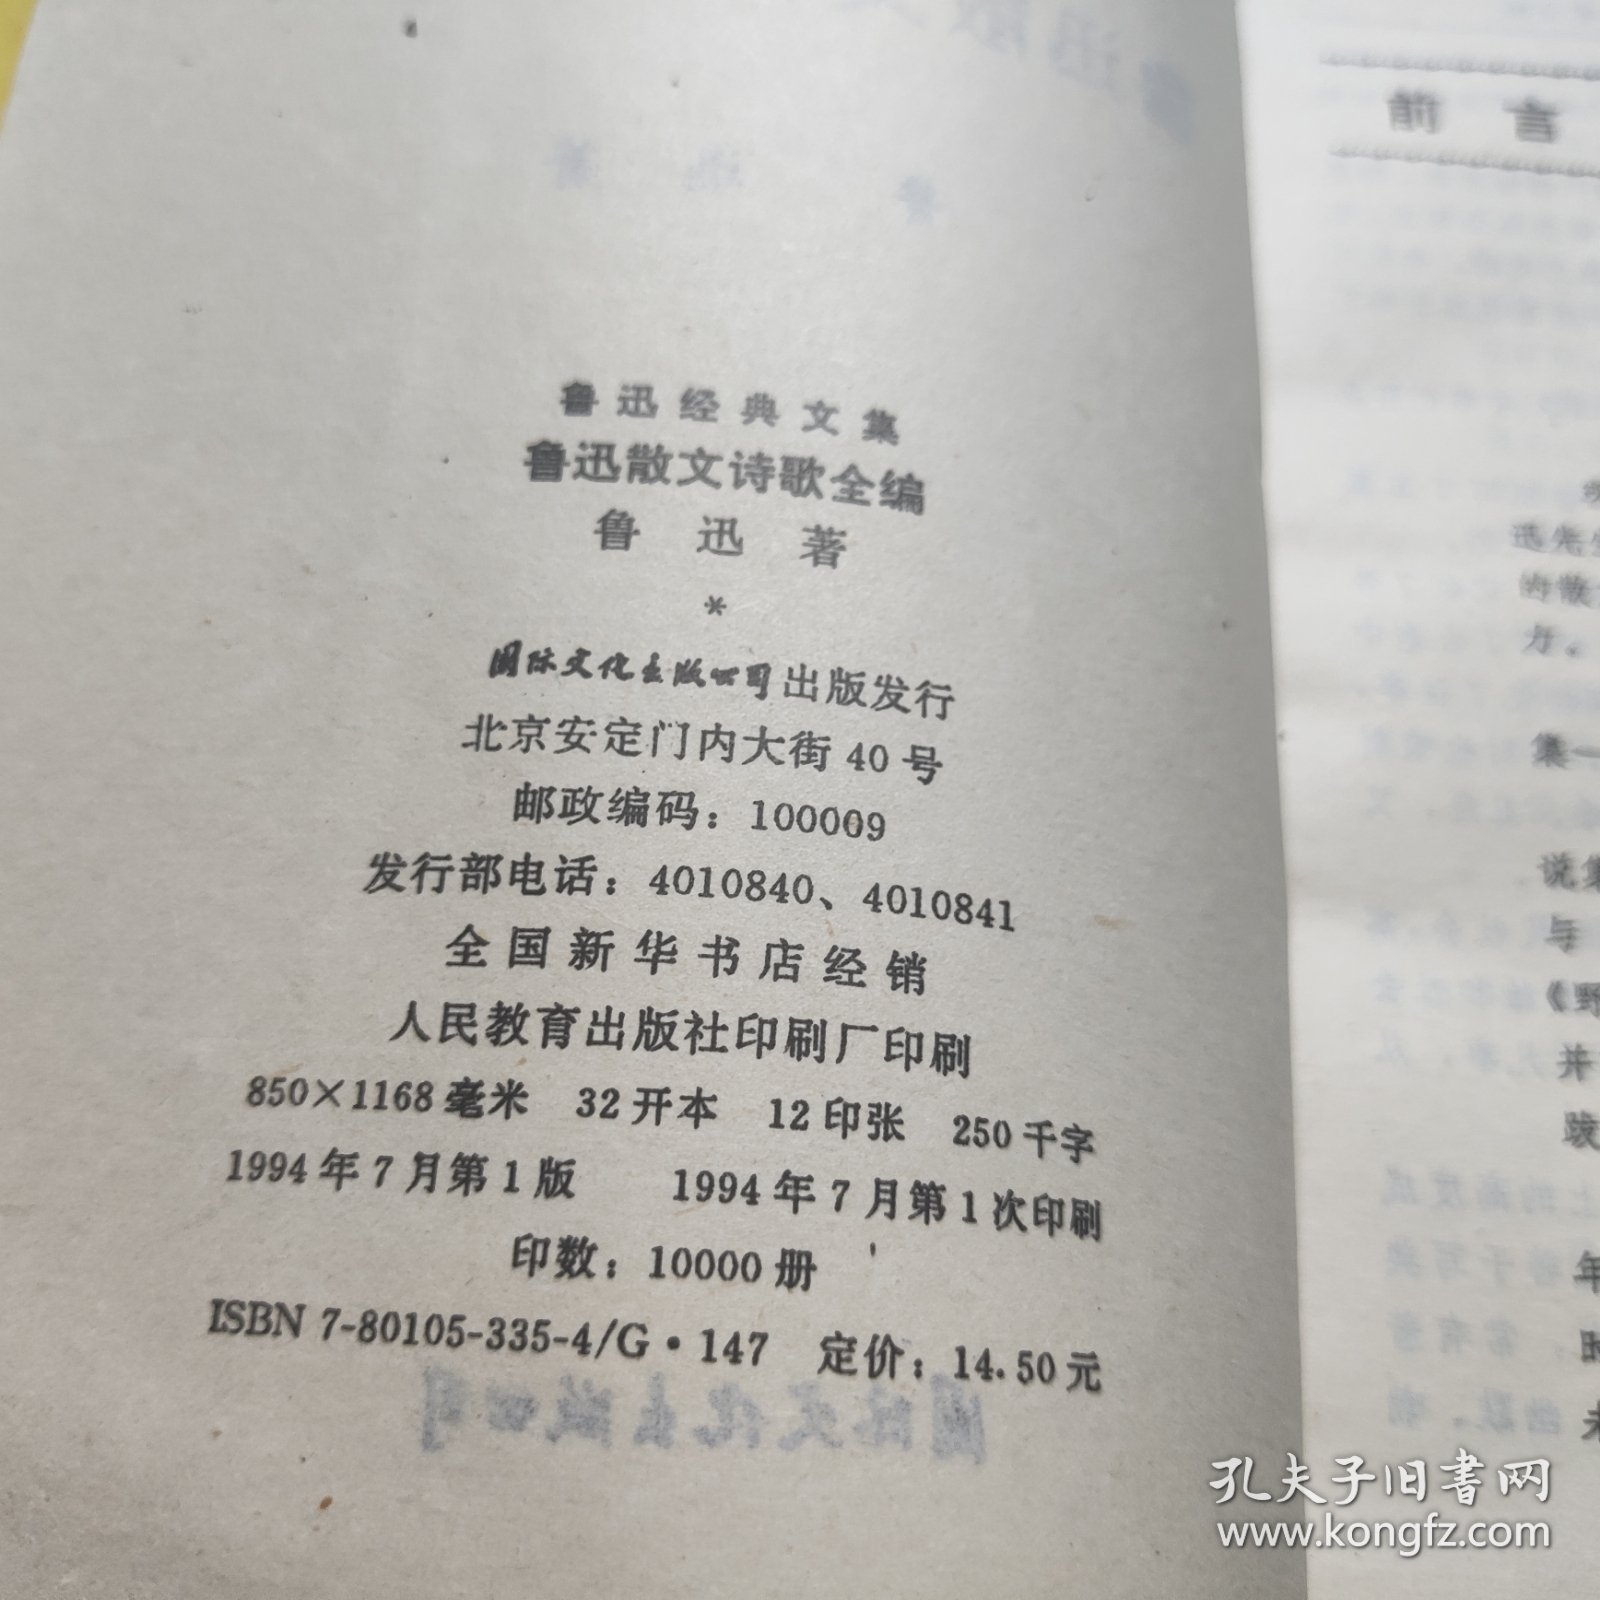 鲁迅经典文集
鲁迅散文诗歌全编
鲁 迅 著
*
国际文化出版公司出版发行
北京安定门内大街 40 号
邮政编码：100009
发行部电话：4010840、4010841
全国新华书店经销
人民教育出版社印刷厂印刷
850×1168毫米 32开本 12印张 250千字
1994年7月第1版 1994年7月第1次印刷
印数：10000册
ISBN 7-80105-335-4/G·147 定价：14.50元
前 言
迅先生
的散
集一
说集
与
《野
并
跋
年
时
孔夫子旧书网
www.kongfz.com